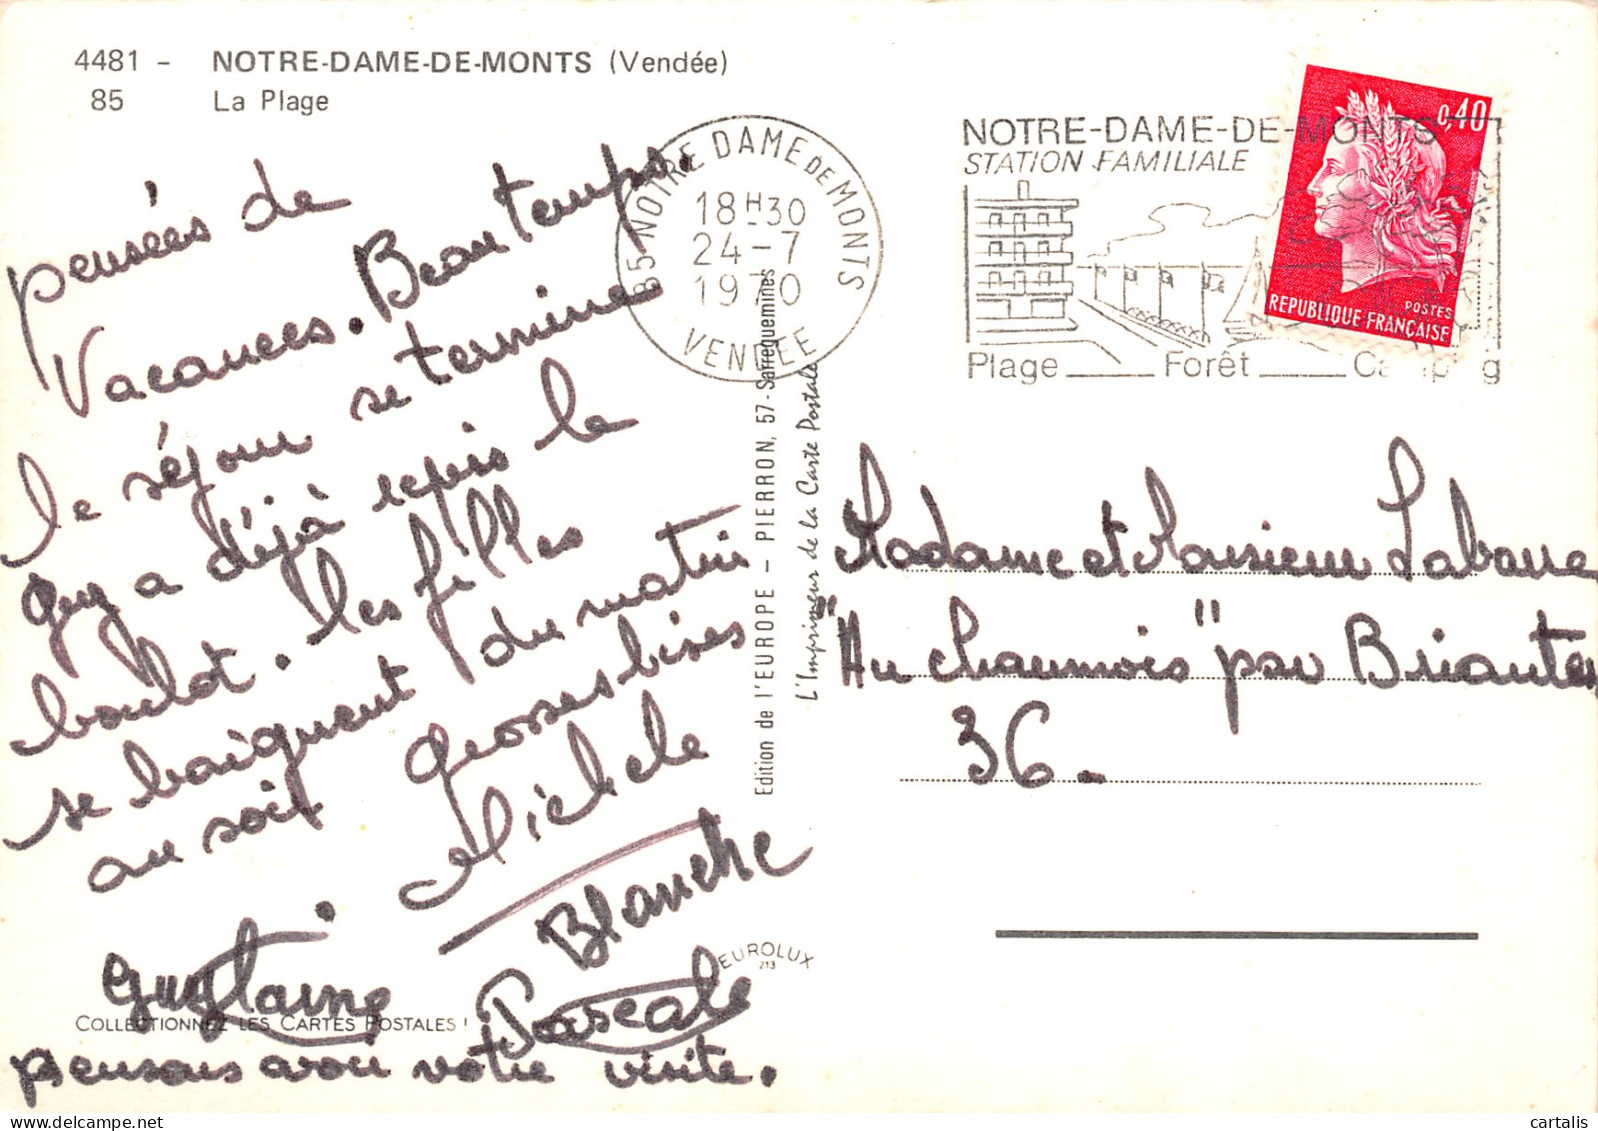 4481 - NOTRE-DAME-DE-MONTS (Vendée)
85 La Plage
pensées de
Vacances. Beau temps.
le séjour se termine
Guy a déjà repris le
boulot. les filles
se baignent du matin
au soir grosses bises
Michele
Blanche
Guylaine
Pascale
pensons avoir votre visite.
COLLECTIONNEZ LES CARTES POSTALES !
EUROLUX
213
Edition de l'EUROPE - PIERRON, 57-Sarreguemines
L'Imprimeur de la Carte Postale
85-NOTRE DAME DE MONTS
18H30
24-7
1970
VENDÉE
NOTRE-DAME-DE-MONTS
STATION FAMILIALE
Plage Forêt Camping
0,40
POSTES
REPUBLIQUE FRANÇAISE
Madame et Monsieur Labarre
"Au Chaumois" par Briantes
36.
cartalis.com